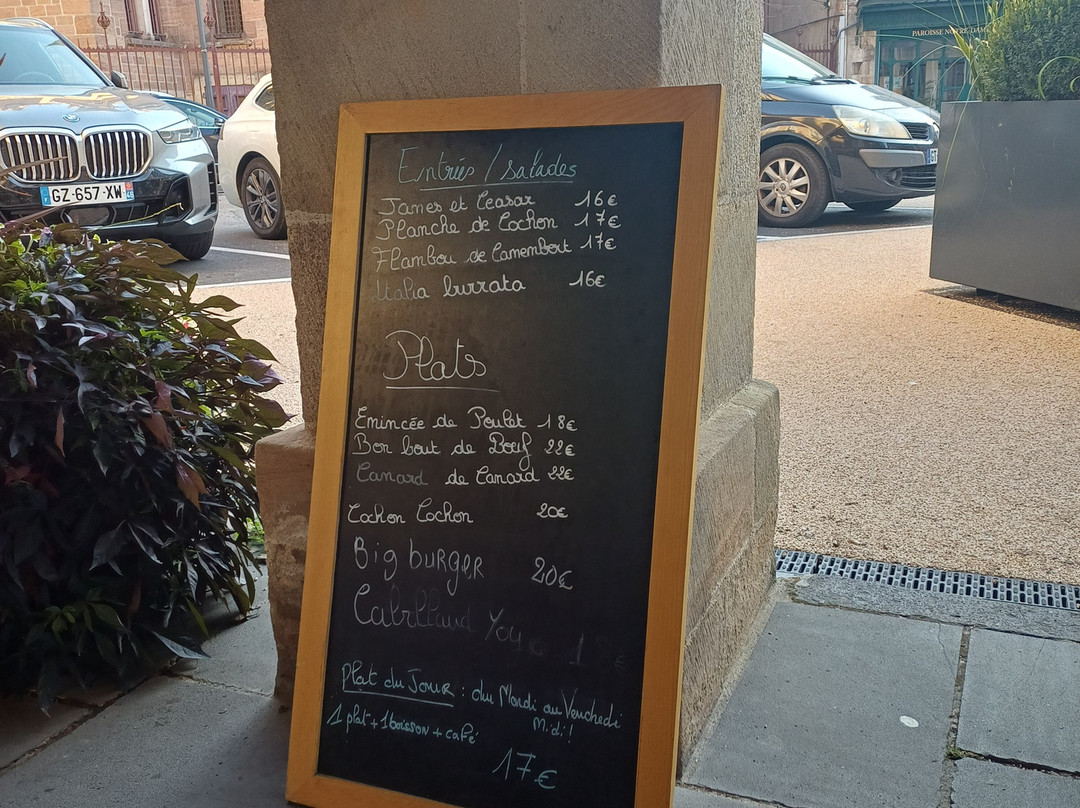 PAROISSE NOTRE DAME
GZ-657-XW
Entrées / salades
James et Ceasar 16€
Planche de Cochon 17€
Flambou de Camembert 17€
Italia burrata 16€
Plats
Emincée de Poulet 18€
Bon bout de Boeuf 22€
Canard de Canard 22€
Cochon Cochon 20€
Big burger 20€
Cabillaud
Plat du Jour : du Mardi au Vendredi
Midi!
1 plat + 1 boisson + café
17€